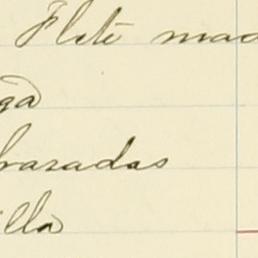 Flete mad
ga
brazadas
illa